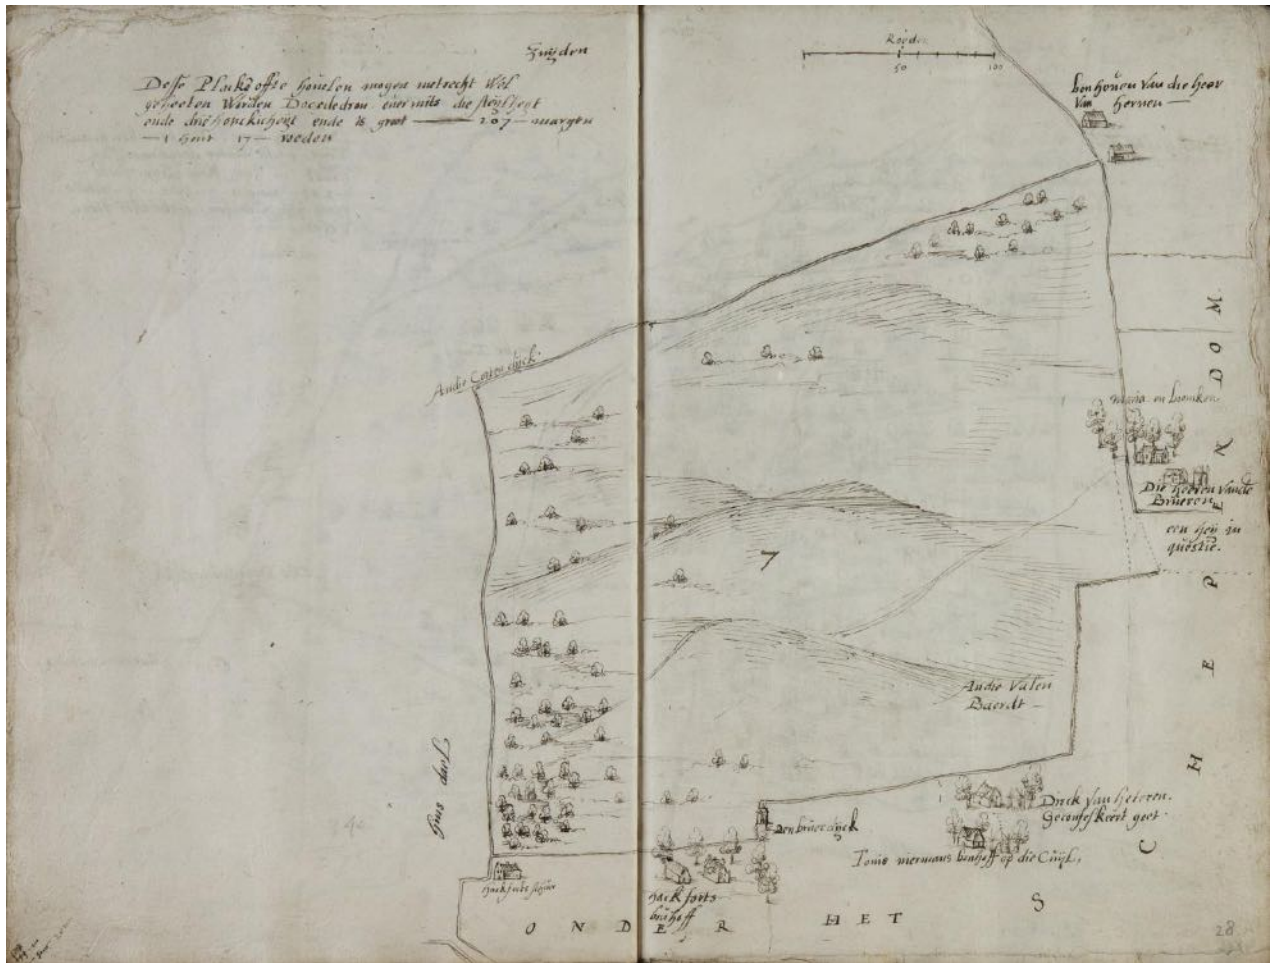 Zuyden
Desse Plack offte houelen mogen metrecht Wel
geheeten Worden Doecededron euermits die steylheyt
ende drie honckicheyt ende is groot — 207 — margen
— 1 hont 17 — roeden
Roede
50
100
bouhouen van die heer
Van hernen —
Andie Corten dyck
Maria en boomken
Die heeren vande
Brueren
een hey in
questie.
7
Andie Valen
Baerdt —
huis land
Dirck Van heteren.
Geconfeskeert goet.
den bruer dyck
Tonis niermans bouhoff op die Cuyl,
hackforts
bouhoff
ONDER HET SCHEPENDOM
28